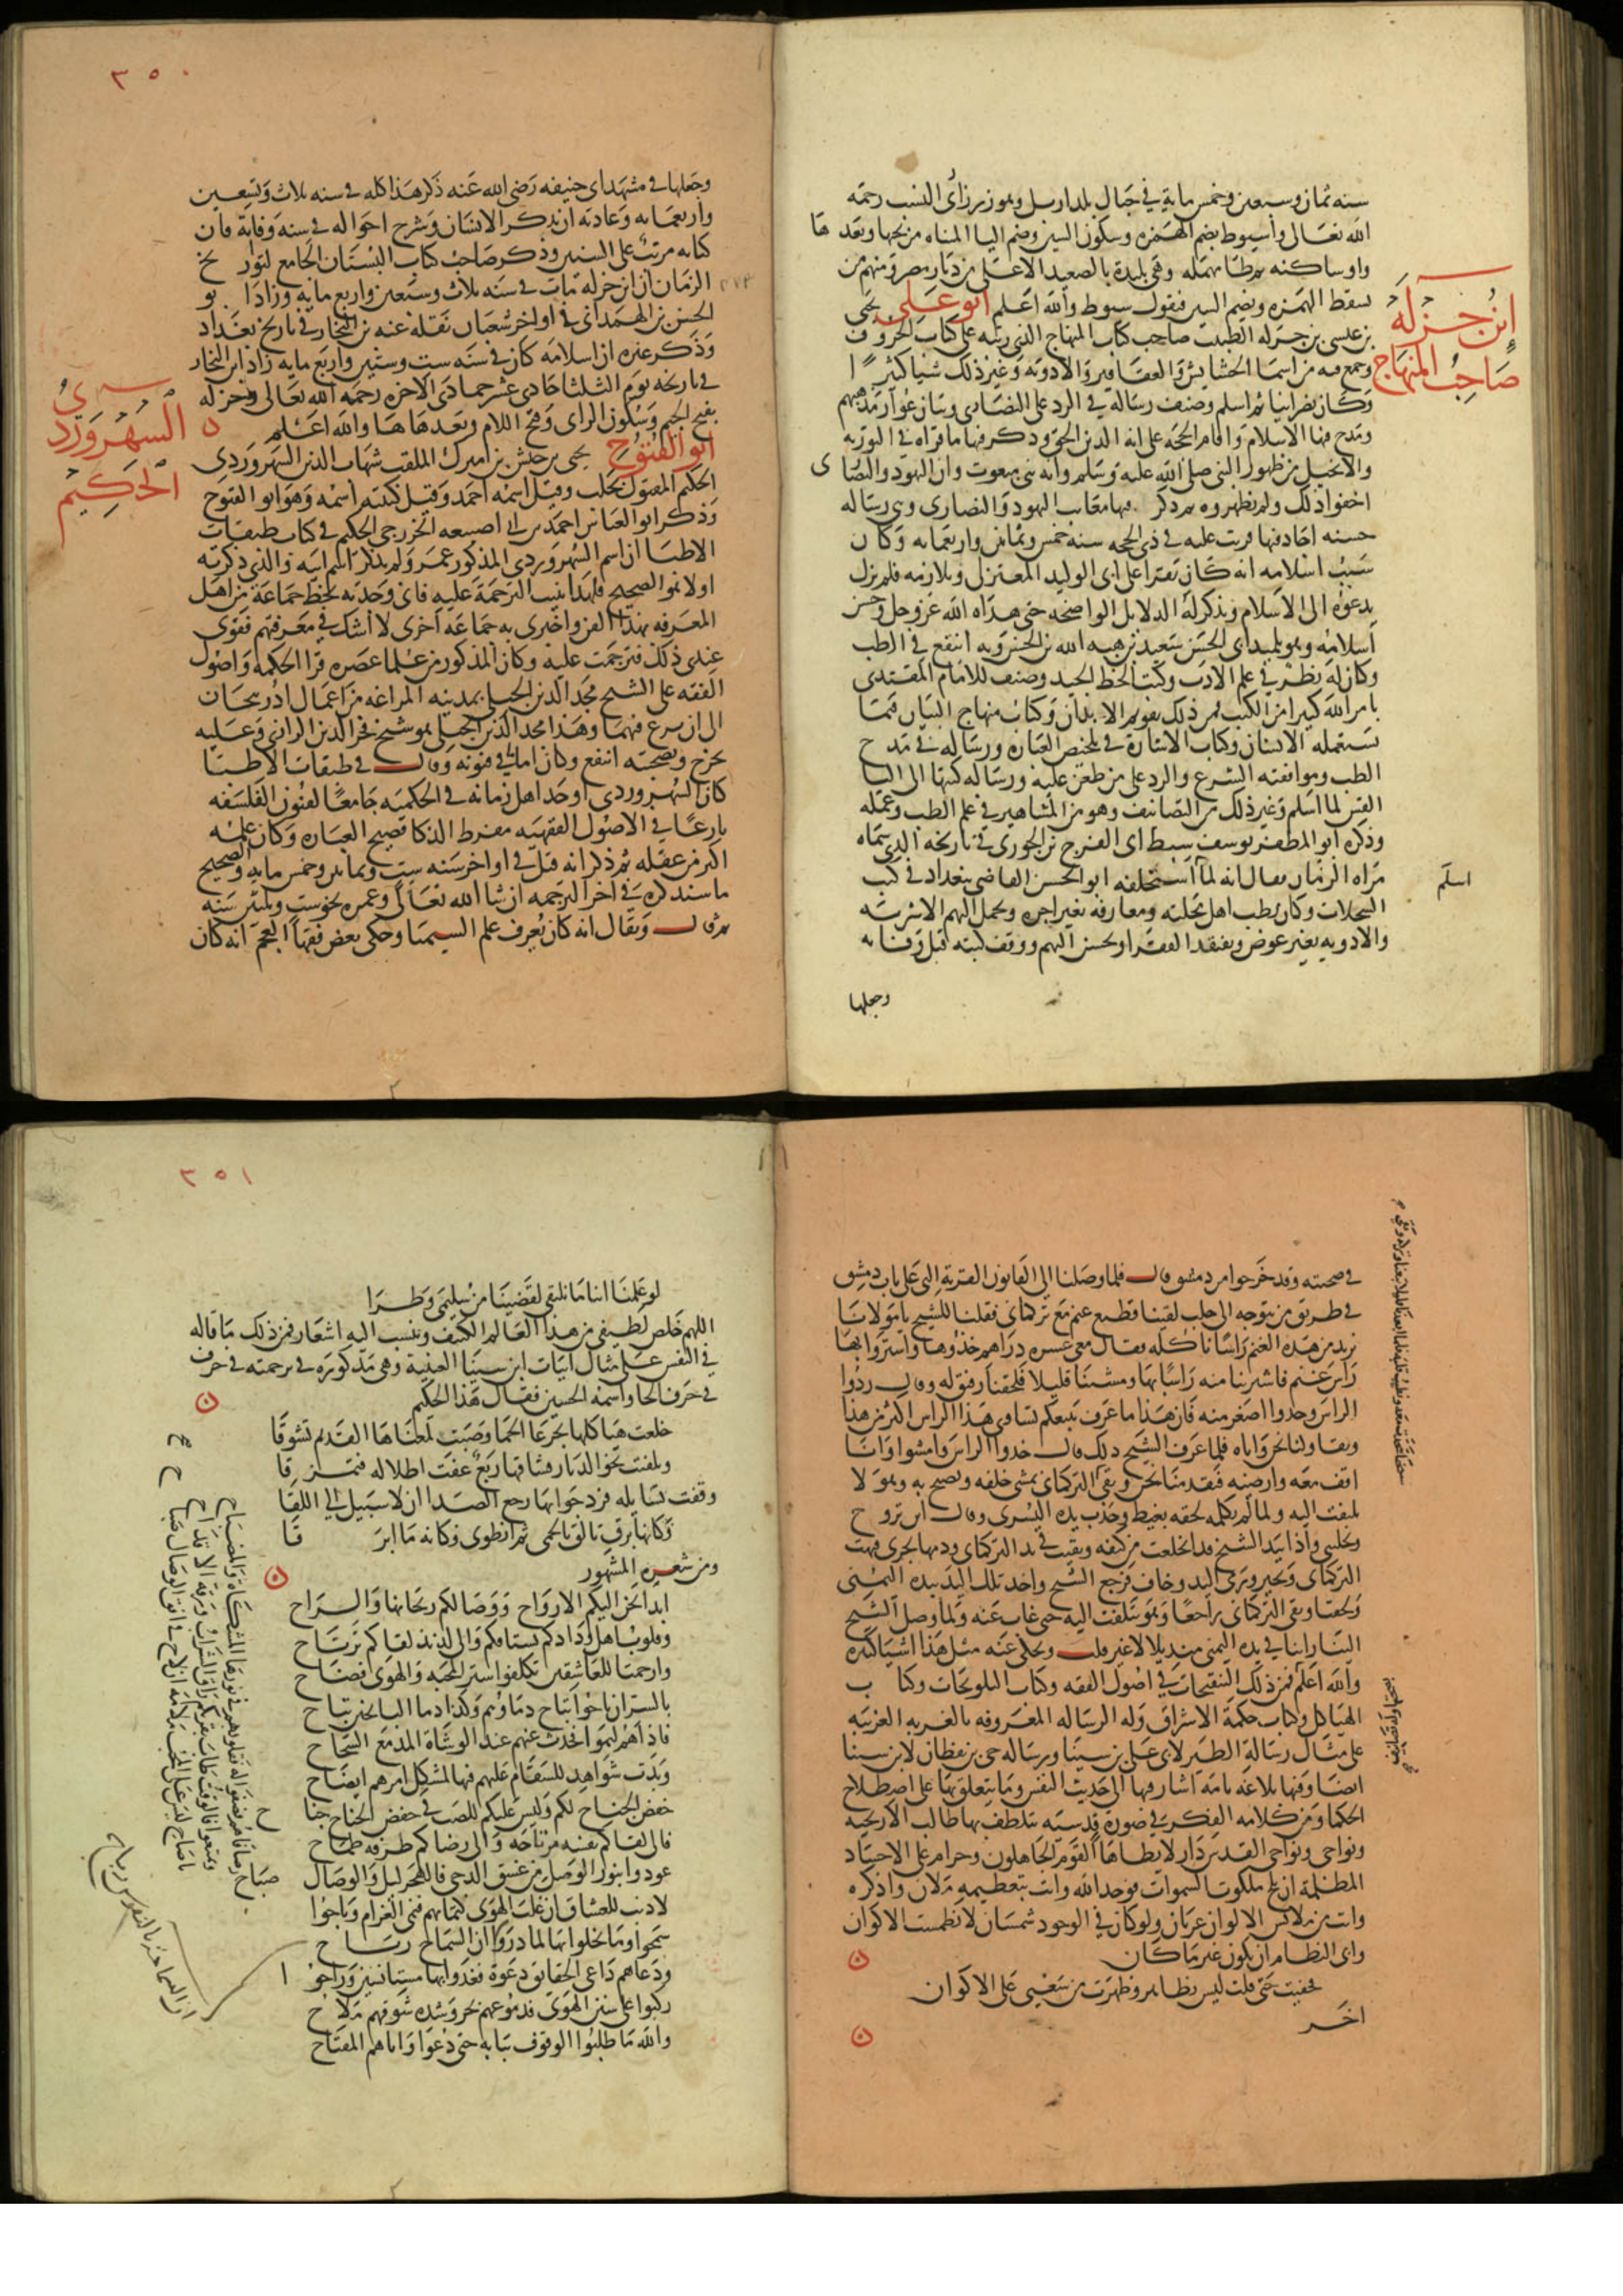 سنه ثمان وسبعين وخمس مايه في جبال بلد اربل وبوزيرزاى النسب رحمه
الله تعالى وأسيوط بضم الهمزه وسكون السين وضم اليا المثناه من تحتها وبعدها
واو ساكنه ثم طا مهمله وهي بليدة بالصعيد الاعلى من ديار مصر ومنهم من
يسقط الهمزه ويضم السين فيقول سيوط والله اعلم ابو علي يحيى
ابن جزلة
صاحب المنهاج
بن عيسى بن جزله الطبيب صاحب كتاب المنهاج الذي رتبه على كتاب الحروف
وجمع فيه من اسما الحشايش والعقاقير والادويه وغير ذلك شيا كثيرًا
وكان نصرانيا ثم اسلم وصنف رساله في الرد على النصارى وبيان عوار مذهبهم
ومدح فيها الاسلام واقام الحجه على انه الدين الحق وذكر فيها ما قراه في التوريه
والانجيل من ظهور النبى صلى الله عليه وسلم وانه نبي مبعوث وان اليهود والنصارى
اخفوا ذلك ولم يظهروه ثم ذكر فيها معايب اليهود والنصارى وهي رساله
حسنه اجاد فيها قريت عليه في ذي الحجه سنه خمس وثمانين واربعمايه وكان
سبب اسلامه انه كان يقرا على ابى الوليد المعتزلى ويلازمه فلم يزل
يدعوه الى الاسلام ويذكر له الدلايل الواضحه حتى هداه الله عز وجل وحسن
اسلامه وهو تلميذ ابى الحسن سعيد بن هبه الله بن الحسن وبه انتفع في الطب
وكان له نظر في علم الادب وكتب الخط الجيد وصنف للامام المقتدى
بامر الله كثيرا من الكتب فمن ذلك تقويم الابدان وكتاب منهاج البيان فيما
يستعمله الانسان وكتاب الاشارة في تلخيص العباره ورساله في مدح
الطب وموافقته الشرع والرد على من طعن عليه ورساله كتبها الى اليا
القس لما اسلم وغير ذلك من التصانيف وهو من المشاهير في علم الطب وعمله
وذكره ابو المظفر يوسف سبط ابى الفرج بن الجوزى في تاريخه الذى سماه
مراه الزمان فقال انه لما استخلفه ابو الحسن القاضى ببغداد في كتب
اسلم
السجلات وكان يطب اهل محلته ومعارفه بغير اجره ويحمل اليهم الاشربه
والادويه بغير عوض ويفتقد الفقرا ويحسن اليهم ووقف كتبه قبل وفاته
وجعلها
٣٥٠
وجعلها في مشهد ابى حنيفه رضى الله عنه ذكر هذا كله في سنه ثلاث وتسعين
واربعمايه وعادته ان يذكر الانسان وشرح احواله في سنه وفاته فان
كتابه مرتب على السنين وذكر صاحب كتاب البستان الجامع لتواريخ
الزمان ان ابن جزله مات في سنه ثلاث وسبعين واربع مايه وزاد ابو
الحسن بن الهمدانى في اواخر شعبان نقله عنه بن النجار في تاريخ بغداد
وذكر غيره ان اسلامه كان في سنه ست وستين واربع مايه زاد ابن النجار
في تاريخه يوم الثلثا حادى عشر جمادى الاخره رحمه الله تعالى وجزله
بفتح الجيم وسكون الزاى وفتح اللام وبعدها ها والله اعلم
السهروردى
الحكيم
ابو الفتوح يحيى بن حبش بن اميرك الملقب شهاب الدين السهروردى
الحكيم المقتول بحلب وقيل اسمه احمد وقيل كنيته اسمه وهو ابو الفتوح
وذكر ابو العباس احمد بن ابى اصيبعه الخزرجى الحكيم في كتاب طبقات
الاطبا ان اسم السهروردى المذكور عمر ولم يذكر اسم ابيه والذى ذكرته
اولا هو الصحيح فلهذا بنيت الترجمة عليه فانى وجدته بخط جماعة من اهل
المعرفه بهذا الفن واخبرنى به جماعة اخرى لا اشك في معرفتهم فقوى
عندى ذلك فترجمت عليه وكان المذكور من علما عصره قرا الحكمه واصول
الفقه على الشيخ مجد الدين الجيلى بمدينه المراغه من اعمال اذربيجان
الى ان برع فيهما وهذا مجد الدين الجيلى هو شيخ فخر الدين الرازى وعليه
تخرج وبصحبته انتفع وكان اماما في فنونه وقال في طبقات الاطبا
كان السهروردى اوحد اهل زمانه في الحكميه جامعًا لفنون الفلسفه
بارعًا في الاصول الفقهيه مفرط الذكا فصيح العباره وكان علمه
اكثر من عقله ثم ذكر انه قتل في اواخر سنه ست وثمانين وخمس مايه والصحيح
ما سنذكره في اخر الترجمه ان شا الله تعالى وعمره نحو ست وثلثين سنه
ثم قال ويقال انه كان يعرف علم السيميا وحكى بعض فقها العجم انه كان
في صحبته وقد خرجوا من دمشق قال فلما وصلنا الى القابون القرية التى على باب دمشق
في طريق من يتوجه الى حلب لقينا قطيع غنم مع تركمانى فقلنا للشيخ يا مولانا
نريد من هذه الغنم راسًا ناكله فقال معى عشره دراهم خذوها واشتروا بها
راس غنم فاشترينا منه راسًا بها ومشينا قليلا فلحقنا رفيق له وقال ردوا
الراس وخذوا اصغر منه فان هذا ما عرف يبيعكم يساوى هذا الراس اكثر من هذا
وتقاولنا نحن واياه فلما عرف الشيخ ذلك قال خذوا الراس وامشوا وانا
اقف معه وارضيه فتقدمنا نحن وبقى التركمانى يمشى خلفه ويصيح به وهو لا
يلتفت اليه ولما لم يكلمه لحقه بغيظ وجذب يده اليسرى وقال اين تروح
وتخلينى واذا بيد الشيخ قد انخلعت من كتفه وبقيت في يد التركمانى ودمها يجرى فبهت
التركمانى وتحير ورمى اليد وخاف فرجع الشيخ واخذ تلك اليد بيده اليمنى
ولحقنا وبقى التركمانى راجعًا وهو يتلفت اليه حتى غاب عنه ولما وصل الشيخ
الينا راينا في يده اليمنى منديلا لا غير قلت ويحكى عنه مثل هذا اشيا كثيره
والله اعلم فمن ذلك التنقيحات في اصول الفقه وكتاب التلويحات وكتاب
الهياكل وكتاب حكمة الاشراق وله الرساله المعروفه بالغربه الغريبه
على مثال رسالة الطير لابى على بن سينا ورساله حى بن يقظان لابن سينا
ايضا وفيها بلاغه تامه اشار فيها الى حديث النفس وما يتعلق بها على اصطلاح
الحكما ومن كلامه الفكر في صورة قدسيه يتلطف بها طالب الاريحيه
ونواحى القدس دار لا يطاها القوم الجاهلون وحرام على الاجساد
المظلمة ان تلج ملكوت السموات فوحد الله وانت بتعظيمه ملان واذكره
وانت من ملابس الاكوان عريان ولو كان في الوجود شمسان لانطمست الاكوان
وابى النظام ان يكون غير ما كان
فخفيت حتى قلت ليس بظاهر وظهرت من سعيى على الاكوان
اخر
٣٥١
لو علمنا اننا ما نلتقى لقضينا من سليمى وطرا
اللهم خلص لطيفى من هذا العالم الكثيف وينسب اليه اشعار فمن ذلك ما قاله
في النفس على مثال ابيات ابن سينا العينية وهى مذكوره في ترجمته في حرف
في حرف الحا واسمه الحسين فقال هذا الحكيم
خلعت هياكلها بجرعا الحما وصبت لمغناها القديم تشوقا
وتلفتت نحو الديار فشاقها ربع عفت اطلاله فتمزقا
وقفت تسايله فرد جوابها رجع الصدا ان لا سبيل الى اللقا
فكانها برق تالق بالحمى ثم انطوى فكانه ما ابرقا
ومن شعره المشهور
ابدا تحن اليكم الارواح ووصالكم ريحانها والراح
وقلوب اهل ودادكم تشتاقكم والى لذيذ لقاكم ترتاح
وارحمتا للعاشقين تكلفوا ستر المحبه والهوى فضاح
بالسر ان باحوا تباح دماؤهم وكذا دما البايحين تباح
فاذا هم كتموا تحدث عنهم عند الوشاة المدمع السحاح
وبدت شواهد للسقام عليهم فيها لمشكل امرهم ايضاح
خفض الجناح لكم وليس عليكم للصب في خفض الجناح جناح
فالى لقاكم نفسه مرتاحه والى رضاكم طرفه طماح
عودوا بنور الوصل من غسق الدجى فالهجر ليل والوصال صباح
لا ذنب للعشاق ان غلب الهوى كتمانهم فنمى الغرام وباحوا
سمحوا وما بخلوا بها لما دروا ان السماح رباح
ودعاهم داعى الحقايق دعوة فغدوا بها مستانسين وراحوا
ركبوا على سفن الهوى فدموعهم بحر وشده شوقهم ملاح
والله ما طلبوا الوقوف ببابه حتى دعوا واتاهم المفتاح